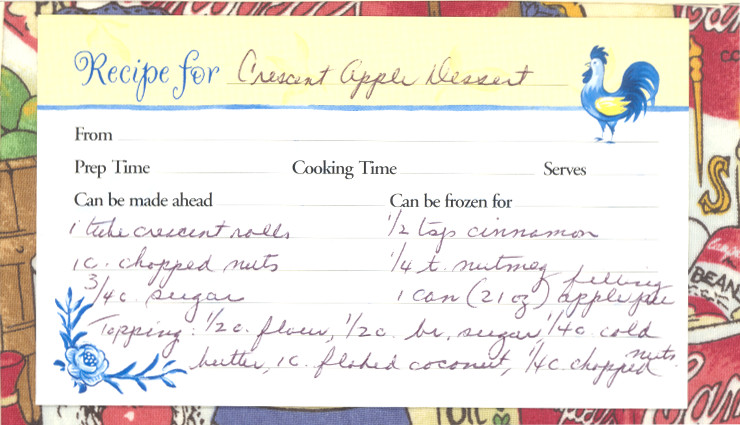 Recipe for Crescent Apple Dessert
From
Prep Time Cooking Time Serves
Can be made ahead Can be frozen for
1 tube crescent rolls 1/2 tsp cinnamon
1 c. chopped nuts 1/4 t. nutmeg
3/4 c. sugar 1 can (21 oz) apple pie filling
Topping: 1/2 c. flour, 1/2 c. br. sugar, 1/4 c. cold
butter, 1 c. flaked coconut, 1/4 c. chopped nuts.
BEAN
OIL